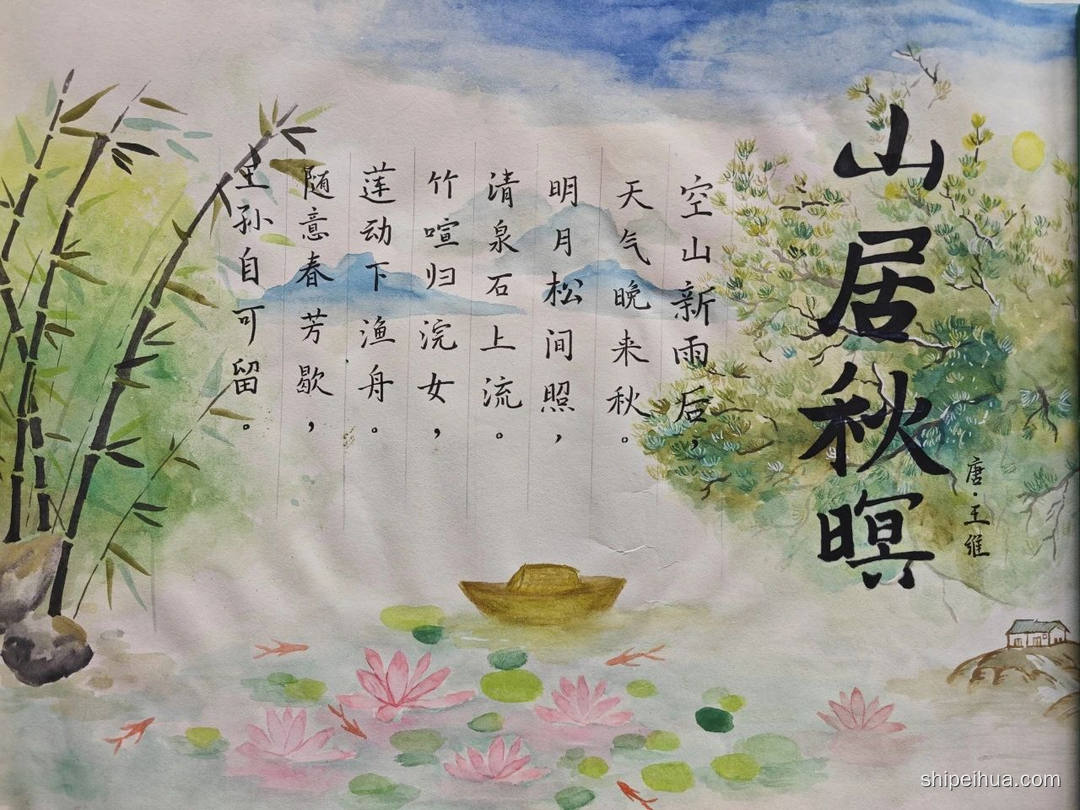 山居秋暝
唐·王维
空山新雨后，
天气晚来秋。
明月松间照，
清泉石上流。
竹喧归浣女，
莲动下渔舟。
随意春芳歇，
王孙自可留。
shipeihua.com